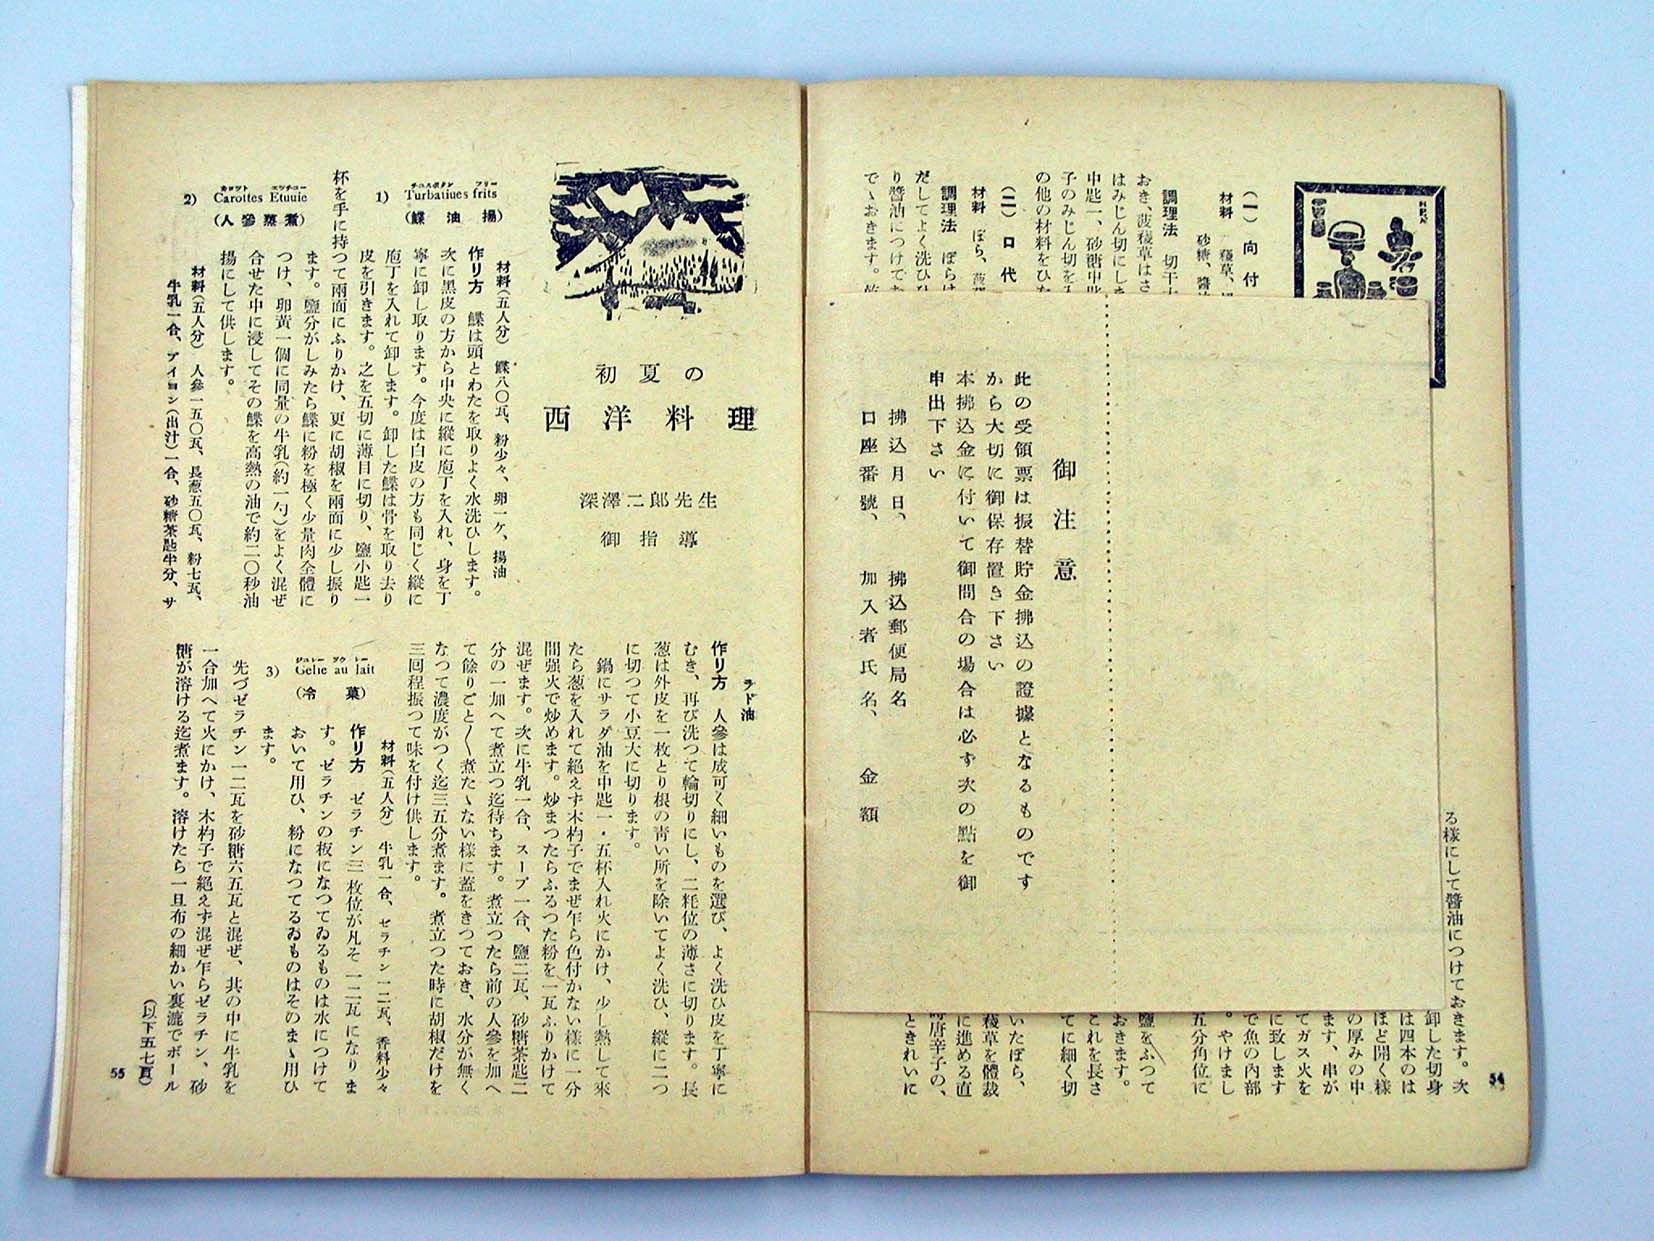 54
(一)向付
材料
砂糖、醬油
調理法
おき、菠薐草はさ
はみじん切にしま
中匙一、砂糖中匙
子のみじん切を入
の他の材料をひた
(二)口代
材料 ぼら、
調理法 ぼらは
だしてよく洗ひひ
り醬油につけてお
でゝおきます。
る樣にして醬油につけておきます。次
卸した切身
は四本のは
ほど開く樣
の厚みの中
ます、串が
てガス火を
に致します
で魚の內部
。やけまし
五分角位に
鹽をふつて
おきます。
これを長さ
てに細く切
いたぼら、
薐草を體裁
に進める直
唐辛子の、
ときれいに
御注意
此の受領票は振替貯金拂込の證據となるものです
から大切に御保存置き下さい
本拂込金に付いて御問合の場合は必ず次の點を御
申出下さい
拂込月日、 拂込郵便局名
口座番號、 加入者氏名、 金額
初夏の
西洋料理
深澤二郎先生
御指導
1) Turbatiues frits
チユスボタン フリー
(鰈油揚)
材料(五人分) 鰈八〇瓦、粉少々、卵一ケ、揚油
作リ方 鰈は頭とわたを取りよく水洗ひします。
次に黑皮の方から中央に縱に庖丁を入れ、身を丁
寧に卸し取ります。今度は白皮の方も同じく縱に
庖丁を入れて卸します。卸した鰈は骨を取り去り
皮を引きます。之を五切に薄目に切り、鹽小匙一
杯を手に持つて兩面にふりかけ、更に胡椒を兩面に少し振り
ます。鹽分がしみたら鰈に粉を極く少量肉全體に
つけ、卵黃一個に同量の牛乳(約一勺)をよく混ぜ
合せた中に浸してその鰈を高熱の油で約二〇秒油
揚にして供します。
2) Carottes Etuuie
カロツト エツチユー
(人參蒸煮)
材料(五人分) 人參一五〇瓦、長葱五〇瓦、粉七瓦、
牛乳一合、ブイヨン(出汁)一合、砂糖茶匙半分、サ
ラド油
作リ方 人參は成可く細いものを選び、よく洗ひ皮を丁寧に
むき、再び洗つて輪切りにし、二粍位の薄さに切ります。長
葱は外皮を一枚とり根の靑い所を除いてよく洗ひ、縱に二つ
に切つて小豆大に切ります。
鍋にサラダ油を中匙一・五杯入れ火にかけ、少し熱して來
たら葱を入れて絕えず木杓子でまぜ乍ら色付かない樣に一分
間强火で炒めます。炒まつたらふるつた粉を一瓦ふりかけて
混ぜます。次に牛乳一合、スープ一合、鹽二瓦、砂糖茶匙二
分の一加へて煮立つ迄待ちます。煮立つたら前の人參を加へ
て餘りごと〳〵煮たゝない樣に蓋をきつておき、水分が無く
なつて濃度がつく迄三五分煮ます。煮立つた時に胡椒だけを
三回程振つて味を付け供します。
3) Gelie au lait
ジユレー ヲウ レー
(冷菓)
材料(五人分) 牛乳一合、ゼラチン一二瓦、香料少々
作リ方 ゼラチン三枚位が凡そ一二瓦になりま
す。ゼラチンの板になつてゐるものは水につけて
おいて用ひ、粉になつてるゐものはそのまゝ用ひ
ます。
先づゼラチン一二瓦を砂糖六五瓦と混ぜ、其の中に牛乳を
一合加へて火にかけ、木杓子で絕えず混ぜ乍らゼラチン、砂
糖が溶ける迄煮ます。溶けたら一旦布の細かい裏漉でボール
(以下五七頁)
55